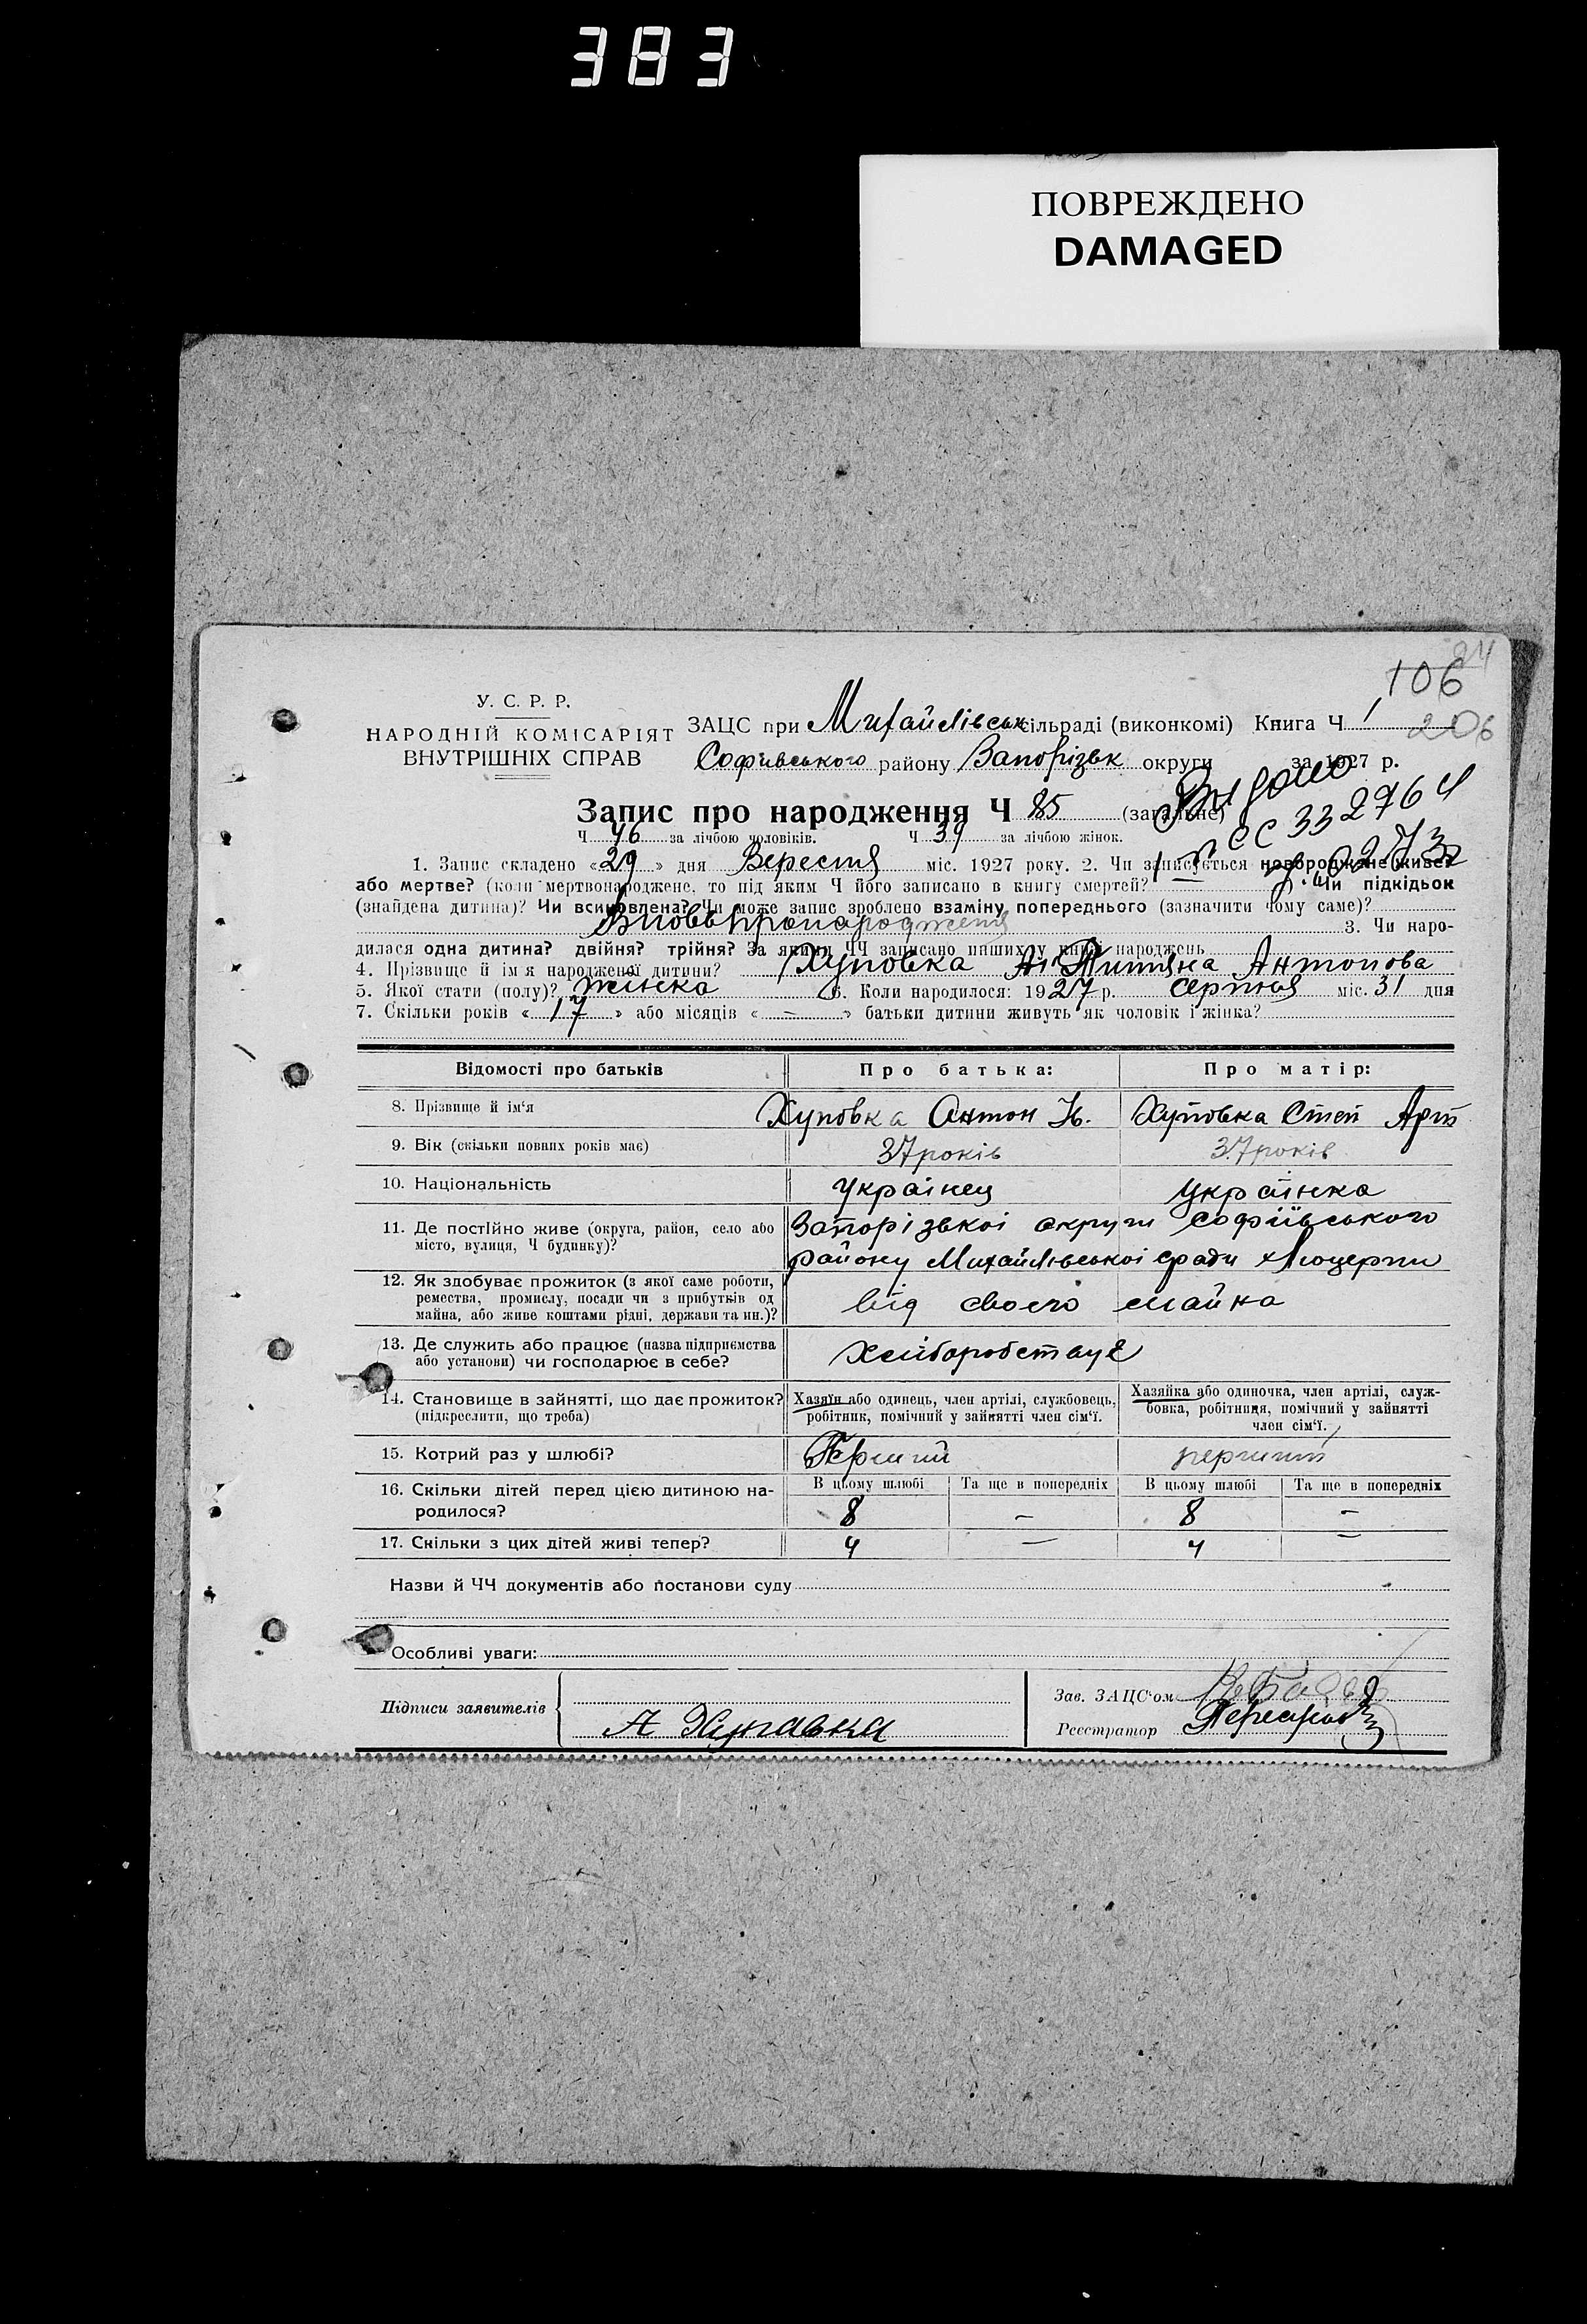 383
ПОВРЕЖДЕНО
DAMAGED
106
206
У. С. Р. Р.
НАРОДНІЙ КОМІСАРІЯТ
ВНУТРІШНІХ СПРАВ
ЗАЦС при Михайлівськ сільраді (виконкомі) Книга Ч 1
Софіївського району Запорізьк округи за 1927 р.
Видано
Запис про народження Ч 85 (загальне)
СС 332764
Ч 46 за лічбою чоловіків. Ч 39 за лічбою жінок.
1. Запис складено «29» дня Вересня міс. 1927 року. 2. Чи записується новороджене живе?
або мертве? (коли мертвонароджене, то під яким Ч його записано в книгу смертей? —) Чи підкідьок
(знайдена дитина)? Чи всиновлена? Чи може запис зроблено взаміну попереднього (зазначити чому саме)?
3. Чи наро-
дилася одна дитина? двійня? трійня? За якими ЧЧ записано инших у книзі народжень
4. Прізвище й ім'я народженої дитини? Хуповка Антонова
5. Якої стати (полу)? жінка 6. Коли народилося: 1927 р. серпня міс. 31 дня
7. Скільки років «17» або місяців «–» батьки дитини живуть як чоловік і жінка?
Відомості про батьків Про батька: Про матір:
8. Прізвище й ім'я Хуповка Антон Ів. Хуповка Степ Арт
9. Вік (скільки повних років має) 37 років 37 років
10. Національність Українец Українка
11. Де постійно живе (округа, район, село або
місто, вулиця, Ч будинку)?
Запорізької округи Софіївського
району Михайлівської сради х Люцерни
12. Як здобуває прожиток (з якої саме роботи,
ремества, промислу, посади чи з прибутків од
майна, або живе коштами рідні, держави та ин.)?
від своего майна
13. Де служить або працює (назва підприємства
або установи) чи господарює в себе?
14. Становище в зайнятті, що дає прожиток?
(підкреслити, що треба)
Хазяїн або одинець, член артілі, службовець,
робітник, помічний у зайнятті член сім'ї.
Хазяйка або одиночка, член артілі, служ-
бовка, робітниця, помічний у зайнятті
член сім'ї.
15. Котрий раз у шлюбі? Перший перший
16. Скільки дітей перед цією дитиною на-
родилося?
В цьому шлюбі Та ще в попередніх В цьому шлюбі Та ще в попередніх
8 – 8 –
17. Скільки з цих дітей живі тепер? 4 — 4 —
Назви й ЧЧ документів або постанови суду
Особливі уваги:
Підписи заявителів
А Хупавка
Зав. ЗАЦС'ом
Реєстратор